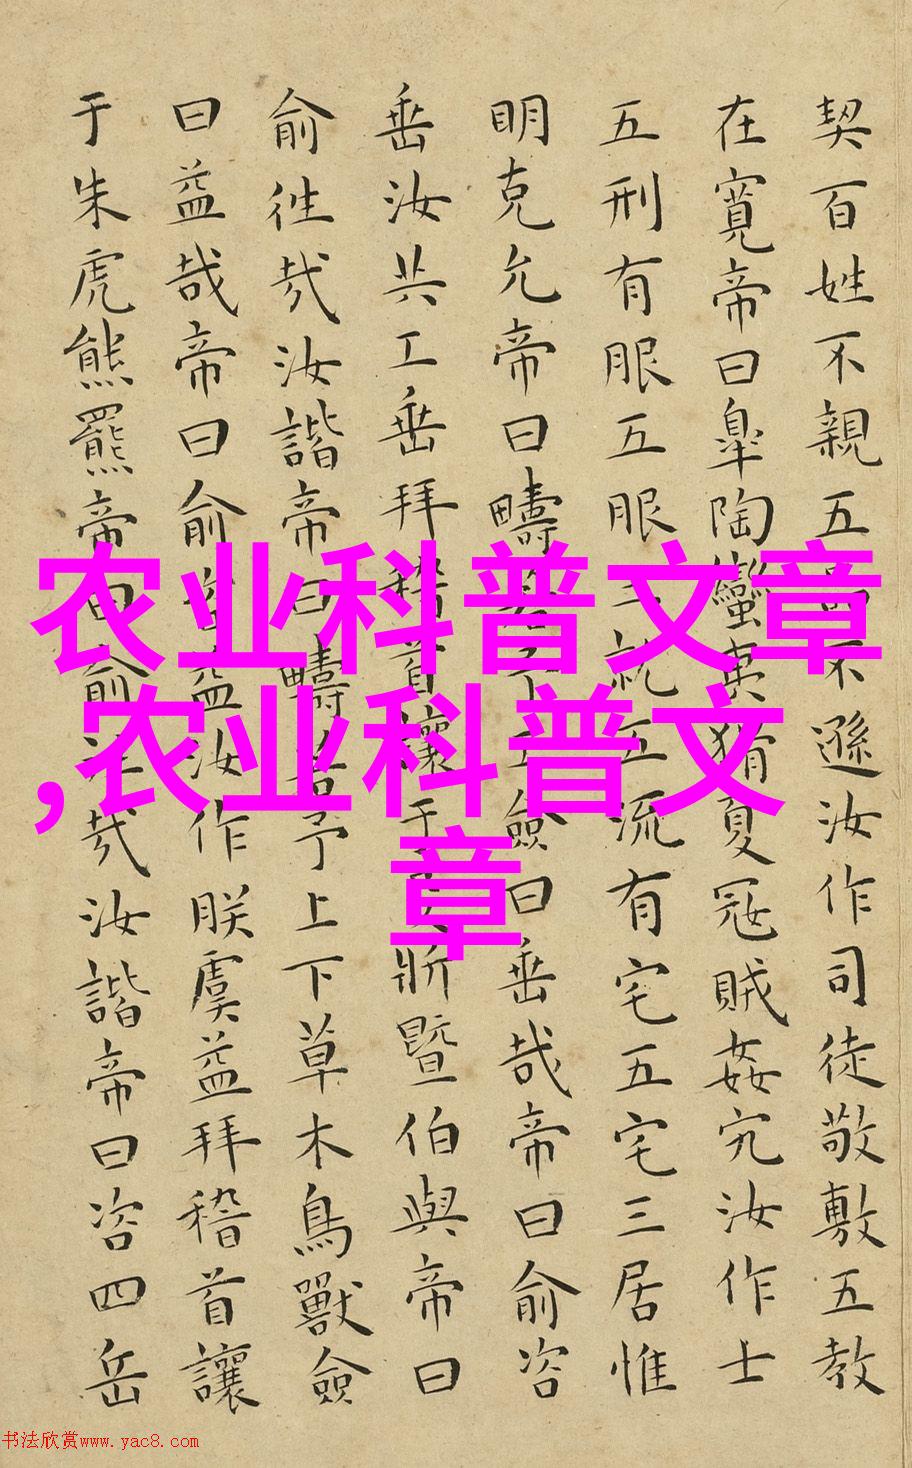 契百姓不親五品不遜汝作司徒敬敷五教
在寬帝曰臯陶蠻夷猾夏冦賊姦宄汝作士
五刑有服五服三就五流有宅五宅三居惟
明克允帝曰疇若予工僉曰垂哉帝曰俞咨
垂汝共工垂拜稽首讓于斨暨伯與帝曰
俞往哉汝諧帝曰疇若予上下草木鳥獸僉
曰益哉帝曰俞咨益汝作朕虞益拜稽首讓
于朱虎熊羆帝曰俞往哉汝諧帝曰咨四岳
农业科普文章
,农业科普文
章
书法欣赏www.yac8.com